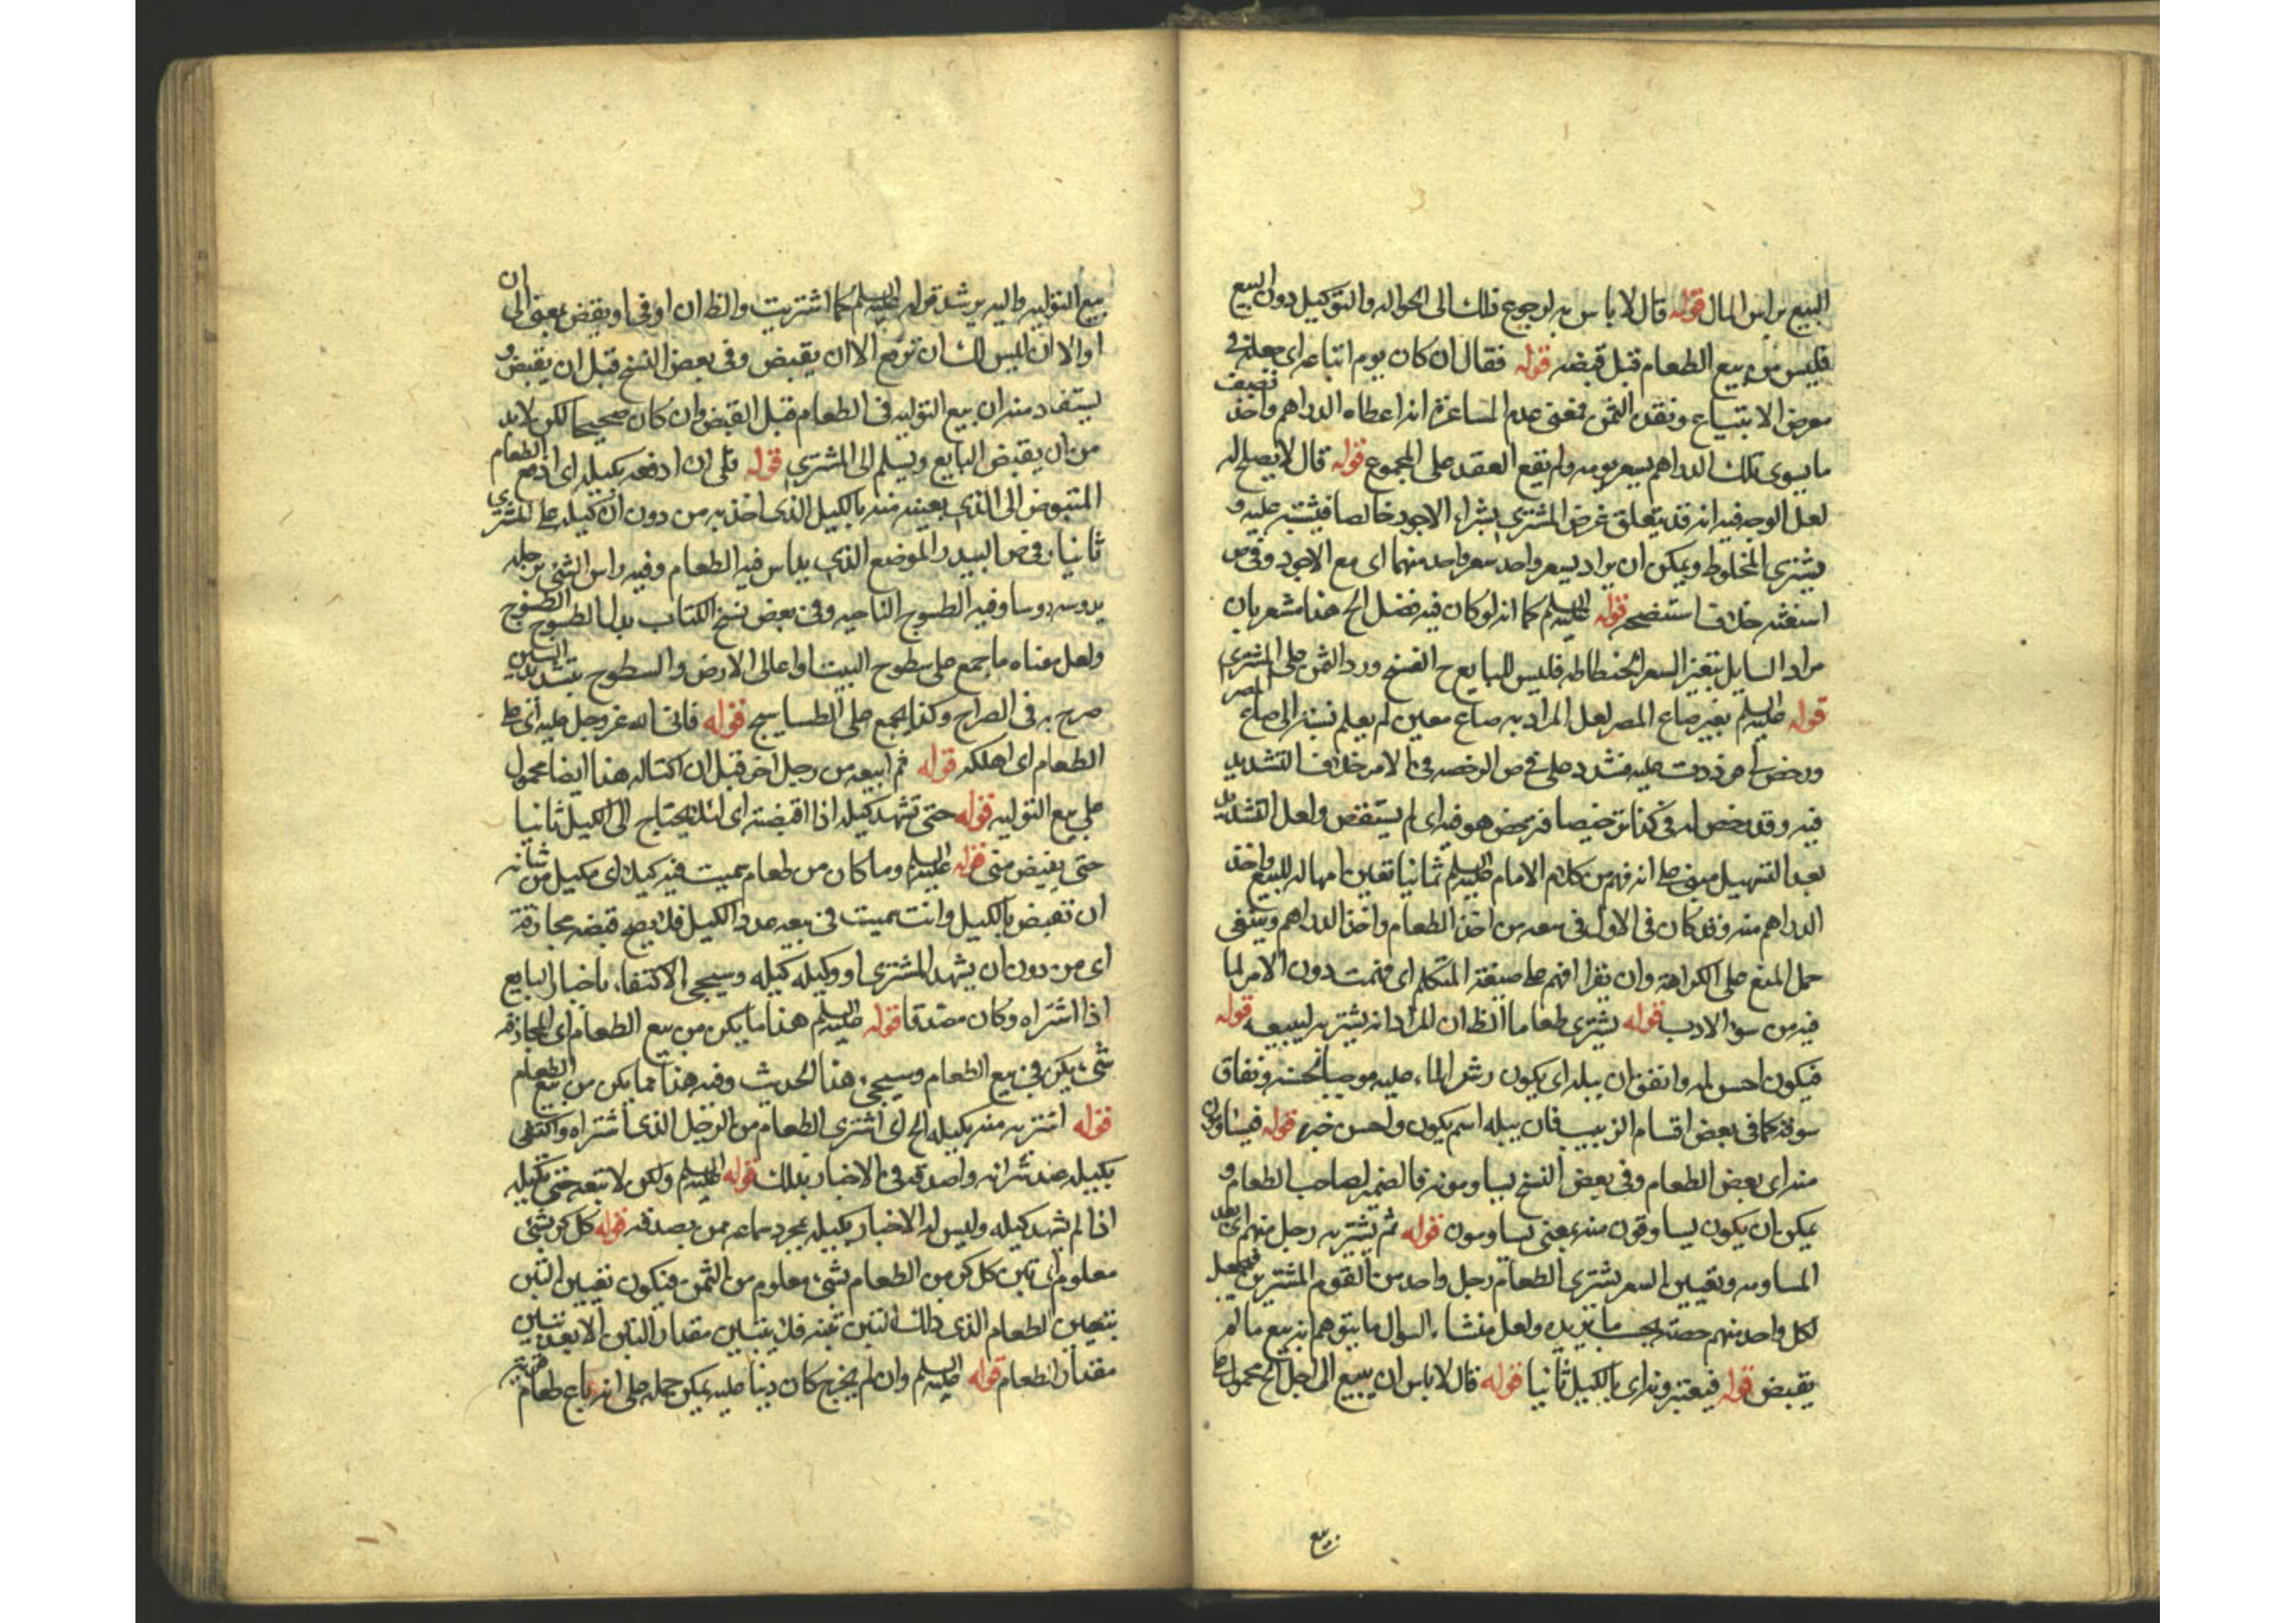 البيع براس المال قوله قال لا باس به لرجوع ذلك الى الحواله والتوكيل دون البيع
فليس من بيع الطعام قبل قبضه قوله فقال ان كان يوم ابتاعه اى جعله فى
معرض الابتياع ونقد الثمن فمعنى عدم المساعرة انه اعطاه الدراهم واخذ نصيف
ما يسوى تلك الدراهم بسعر يومه ولم يقع العقد على المجموع قوله قال لا يصلح له
لعل الوجه فيه انه قد يتعلق غرض المشترى بشراء الاجود خالصا فيشتبه عليه و
يشترى المخلوط ويمكن ان يراد بسعر واحد سعر واحد منهما اى مع الاجود وفى ص
استغشه خلاف استنصحه قوله عليه السلم كما انه لو كان فيه فضل الخ هذا مشعر بان
مراد السايل بتغير السعر انحطاطه فليس للبايع ح الفسخ ورد الثمن على المشترى
قوله عليه السلم بغير صاع المصر لعل المراد به صاع معين لم يعلم نسبته الى صاع المصر
ورخص فيه الرخصه فى الامر خلاف التشديد
فيه وقد رخص له فى كذا ترخيصا فترخص هو فيه اى لم يستقص ولعل التشديد
بعد التسهيل مبنى على انه فهم من كلام الامام عليه السلم ثمانيا تعين امهاله للبيع واخذ
الدراهم منه وقد كان فى الاول فى سعه من اخذ الطعام واخذ الدراهم وينبغى
حمل المنع على الكراهة وان تقرا افهم على صيغة المتكلم اى فهمت دون الامر لما
فيه من سوء الادب قوله يشترى طعاما الظ ان المراد انه يشتريه ليبيعه قوله
فيكون احسن له وانفق ان يبله اى يكون رش الماء عليه موجبا لحسنه ونفاق
سوقه كما فى بعض اقسام الزبيب فان يبله اسم يكون واحسن خبره قوله فيساومون
منه اى بعض الطعام وفى بعض النسخ يساومونه فالضمير لصاحب الطعام و
يمكن ان يكون يساوقون منه بمعنى يساومون قوله ثم يشتريه رجل منهم اى بعد
المساومه وتعيين السعر يشترى الطعام رجل واحد من القوم المشترين فيجعل
لكل واحد منهم حصته بحسب ما يريده ولعل منشاء السوال ما يتوهم انه بيع ما لم
يقبض قوله فيعتبرونه اى بالكيل ثانيا قوله قال لا باس ان يبيع الى اجل الخ محمول على
بيع
بيع التوليه واليه يرشد قوله عليه السلم كما اشتريت والظ ان او فى او يقبض بمعنى الى ان
او الا ان اليس لك ان توقع الا ان يقبض وفى بعض النسخ قبل ان يقبض و
يستفاد منه ان بيع التوليه فى الطعام قبل القبض وان كان صحيحا لكن لا بد
من ان يقبض البايع ويسلم الى المشترى قوله على ان ادفعه بكيله اى ادفع الطعام
المقبوض الى الذى بعينه منه بالكيل الذى اخذ به من دون ان اكيله على المشترى
ثانيا وفى ص البيدر الموضع الذى يداس فيه الطعام وفيه داس الشئ برجله
يدوسه دوسا وفيه الطسوج الناحيه وفى بعض نسخ الكتاب بدل الطسوج الطسوح
ولعل معناه ما جمع على سطوح البيت او اعالى الارض والسطوح بتشديد السين
صرح به فى الصراح وكذا بجمع على الطساسيج قوله فاتى الله عز وجل عليه اى على
الطعام اى اهلكه قوله ثم ابيعه من رجل اخر قبل ان اكتاله هذا ايضا محمول
على بيع التوليه قوله حتى تشهد كيله اذا اقبضته اى لئلا يحتاج الى الكيل ثانيا
حتى يقبض منى قوله عليه السلم وما كان من طعام سميت فيه كيلا اى مكيل من شانه
ان تقبض بالكيل وانت سميت فى بيعه عدد الكيل فلا يصح قبضه مجازفة
اى من دون ان يشهد المشترى او وكيله كيله وسيجئ الاكتفاء باخبار البايع
اذا اشتراه وكان مصدقا قوله عليه السلم هذا ما يكره من بيع الطعام اى المجازفة
شئ يكره فى بيع الطعام وسيجئ هذا الحديث وفيه هذا مما يكره من بيع الطعام
قوله اشتريه منه بكيله الخ اى اشترى الطعام من الرجل الذى اشتراه واكتفى
بكيله عند شرائه واصدقه فى الاخبار بذلك قوله عليه السلم ولكن لا تبعه حتى تكيله
اذا لم يشهد كيله وليس له الاخبار بكيله بمجرد سماعه ممن يصدقه قوله كل كر بشئ
معلوم اى تبن كل كر من الطعام بشئ معلوم من الثمن فيكون تعيين التبن
بتعيين الطعام الذى ذلك التبن تبنه فلا يتبين مقدار التبن الا بعد تبيين
مقدار الطعام قوله عليه السلم وان لم يخرج كان دينا عليه يمكن حمله على انه باع طعام قرية